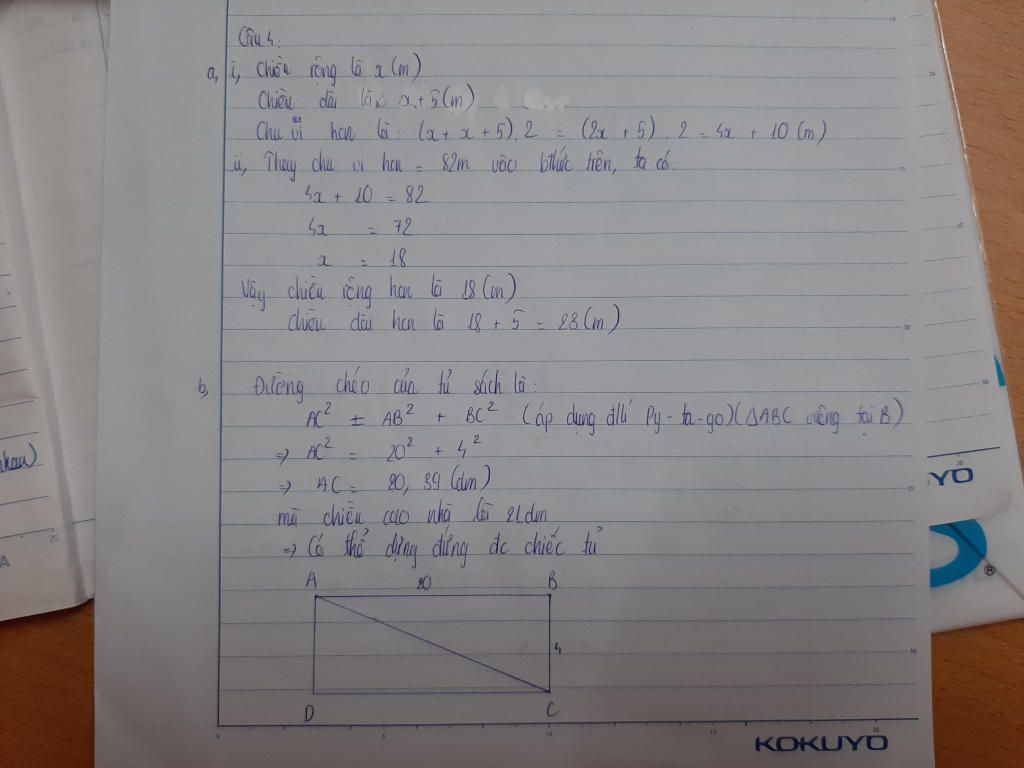 Câu 4:
a, i, Chiều rộng là x (m)
Chiều dài là: x + 5 (m)
Chu vi hcn là: (x + x + 5) . 2 = (2x + 5) . 2 = 4x + 10 (m)
ii, Thay chu vi hcn = 82m vào bthức trên, ta có:
4x + 10 = 82
4x = 72
x = 18
Vậy chiều rộng hcn là 18 (m)
chiều dài hcn là 18 + 5 = 23 (m)
b, Đường chéo của tủ sách là:
AC² = AB² + BC² (áp dụng đlí Py-ta-go) (ΔABC vuông tại B)
=> AC² = 20² + 4²
=> AC = 20,39 (dm)
mà chiều cao nhà là 21dm
=> Có thể dựng đứng đc chiếc tủ
A 20 B
4
D C
nhau)
KOKUYO
YO
®